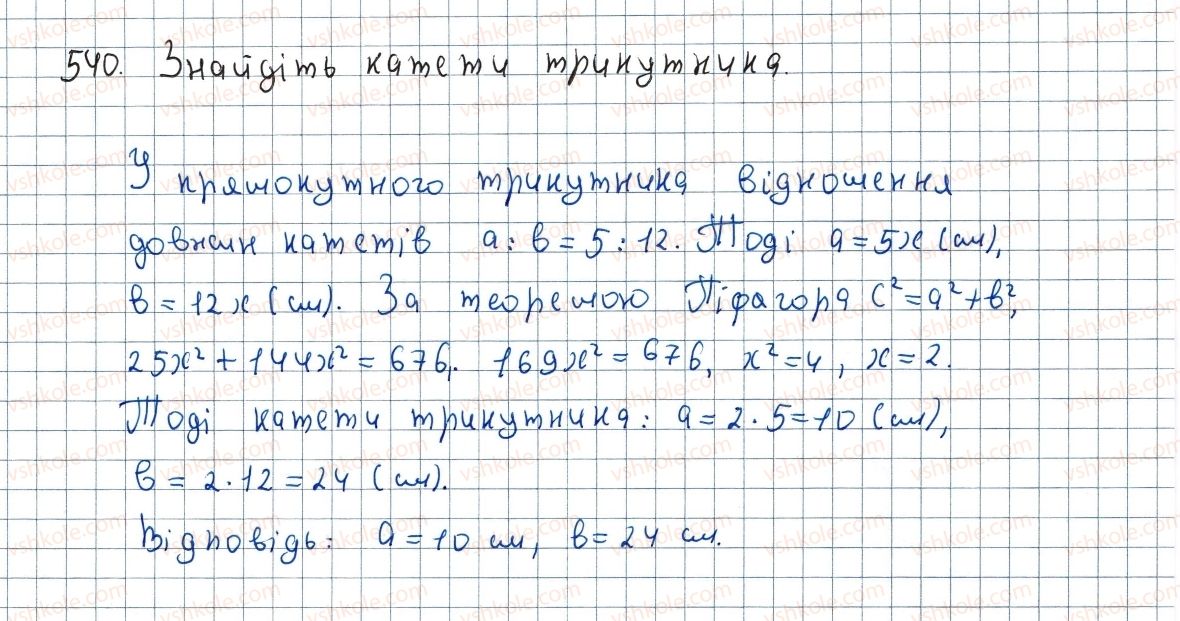 540. Знайдіть катети трикутника.
У прямокутного трикутника відношення
довжин катетів a : в = 5 : 12. Тоді a = 5x (см),
в = 12x (см). За теоремою Піфагора c² = a² + в²,
25x² + 144x² = 676,. 169x² = 676, x² = 4, x = 2.
Тоді катети трикутника: a = 2 · 5 = 10 (см),
в = 2 · 12 = 24 (см).
Відповідь: a = 10 см, в = 24 см.